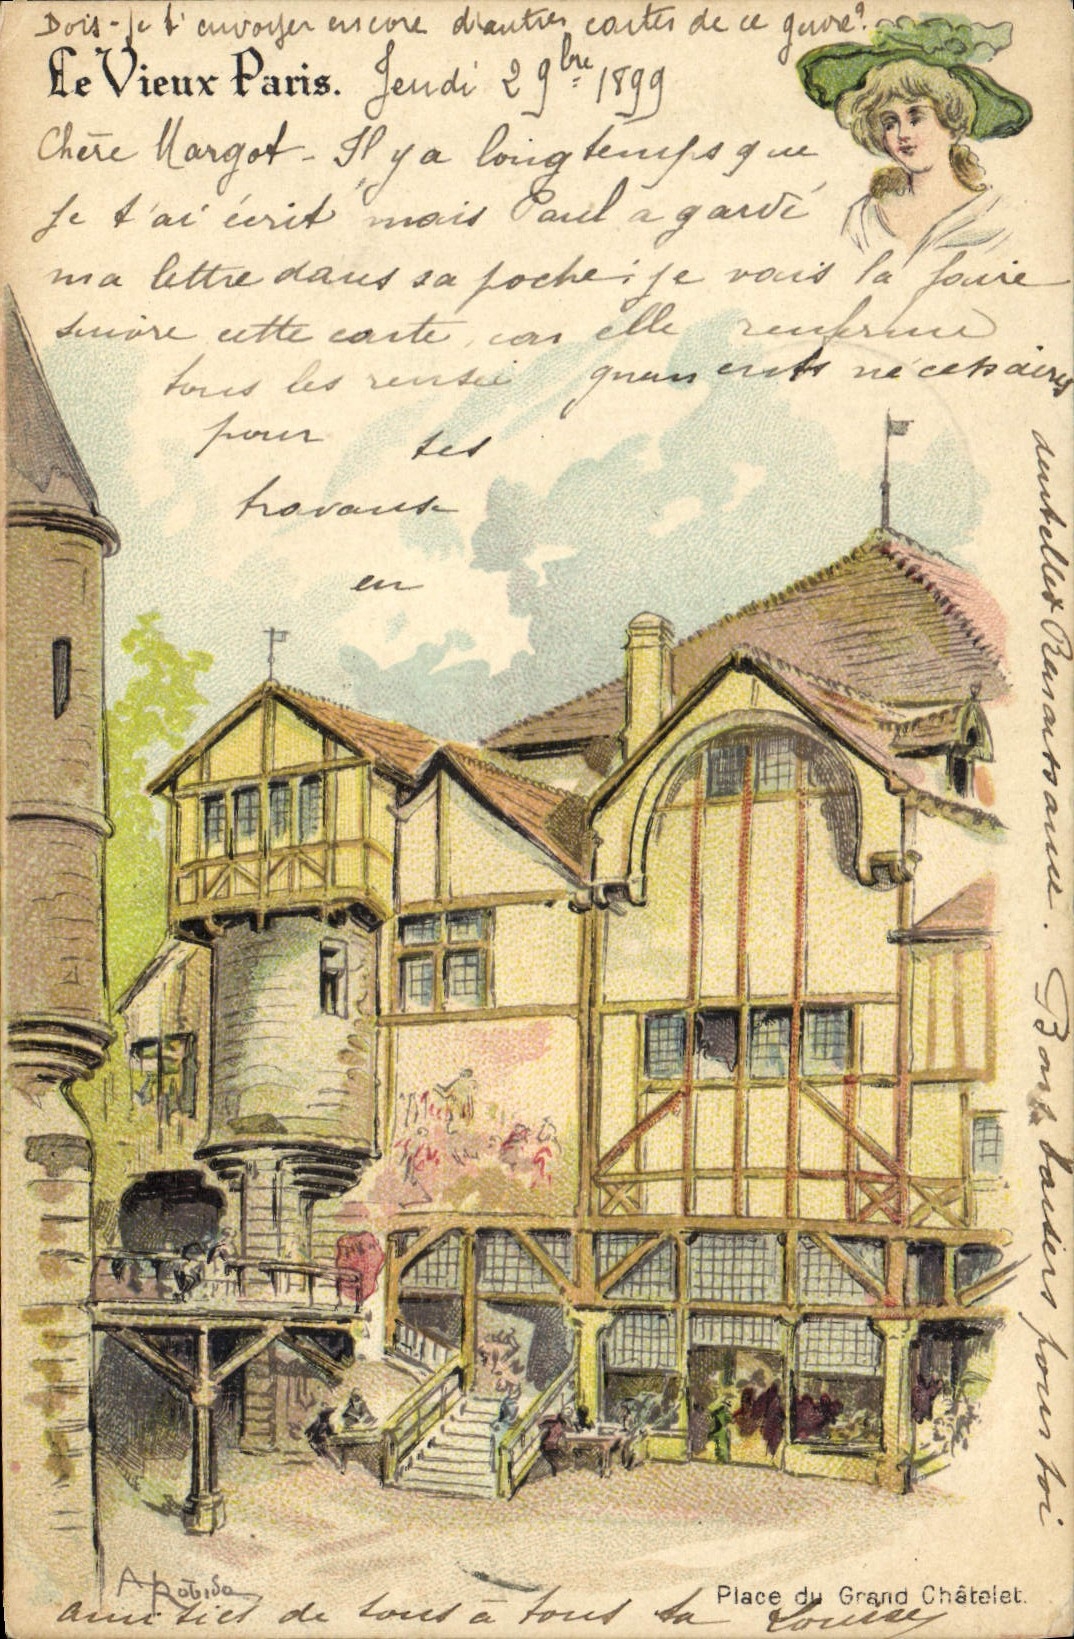 Dois-je t'envoyer encore d'autres cartes de ce genre?
Le Vieux Paris. Jeudi 2 9bre 1899
Chère Margot - Il y a longtemps que
je t'ai écrit mais Paul a gardé
ma lettre dans sa poche; je vais la faire
suivre cette carte, car elle renferme
tous les rensei gnements nécessaires
pour tes
travaux
en
dentelles Renaissance. Bons baisers pour toi
A Robida
Place du Grand Châtelet.
amitiés de tous à tous ta Louise